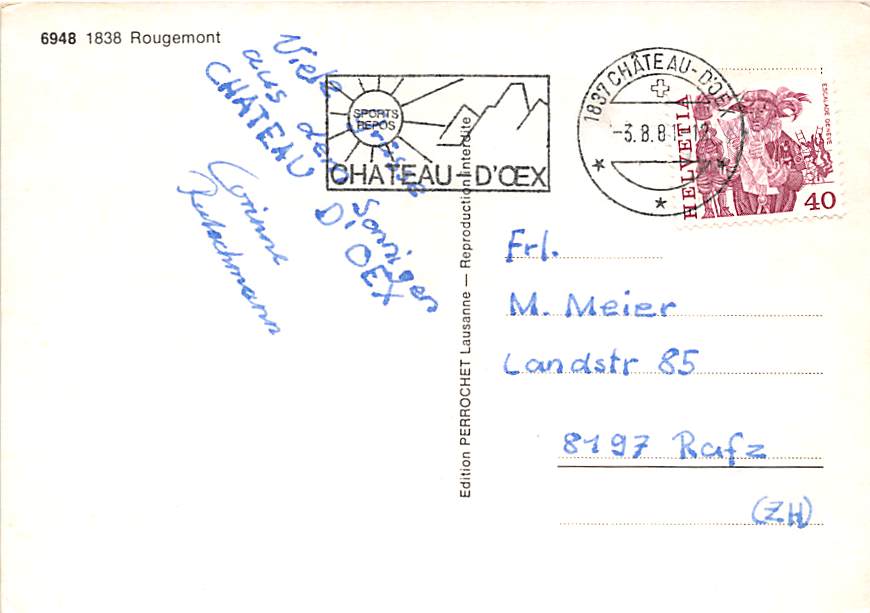 6948 1838 Rougemont
Viele Grüsse
aus dem sonnigen
CHATEAU D'OEX
Corinne
SPORTS
REPOS
CHATEAU-D'ŒX
1837 CHÂTEAU-D'OEX
-3.8.81-12
HELVETIA
ESCALADE GENÈVE
40
Edition PERROCHET Lausanne — Reproduction interdite
Frl.
M. Meier
Landstr 85
8197 Rafz
(ZH)